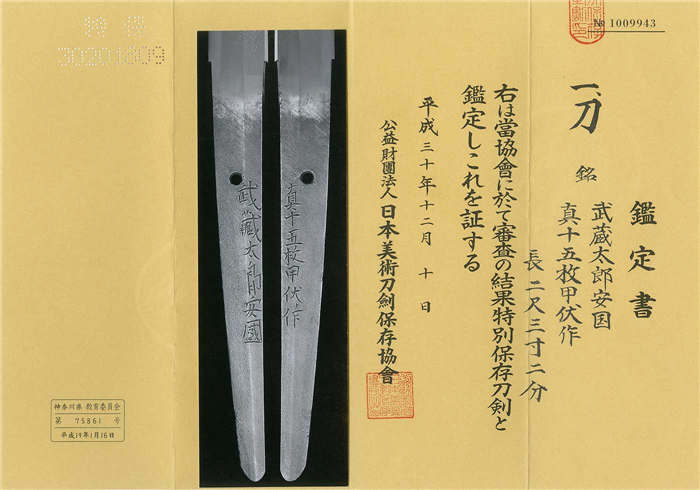 № 1009943
鑑定書
一、刀
銘
武蔵太郎安国
真十五枚甲伏作
長二尺三寸二分
右は當協會に於て審査の結果特別保存刀剣と
鑑定しこれを証する
平成三十年十二月十日
公益財團法人日本美術刀劍保存協會
真十五枚甲伏作
武藏太郎安國
神奈川県 教育委員会
第 75861 号
平成19年1月16日